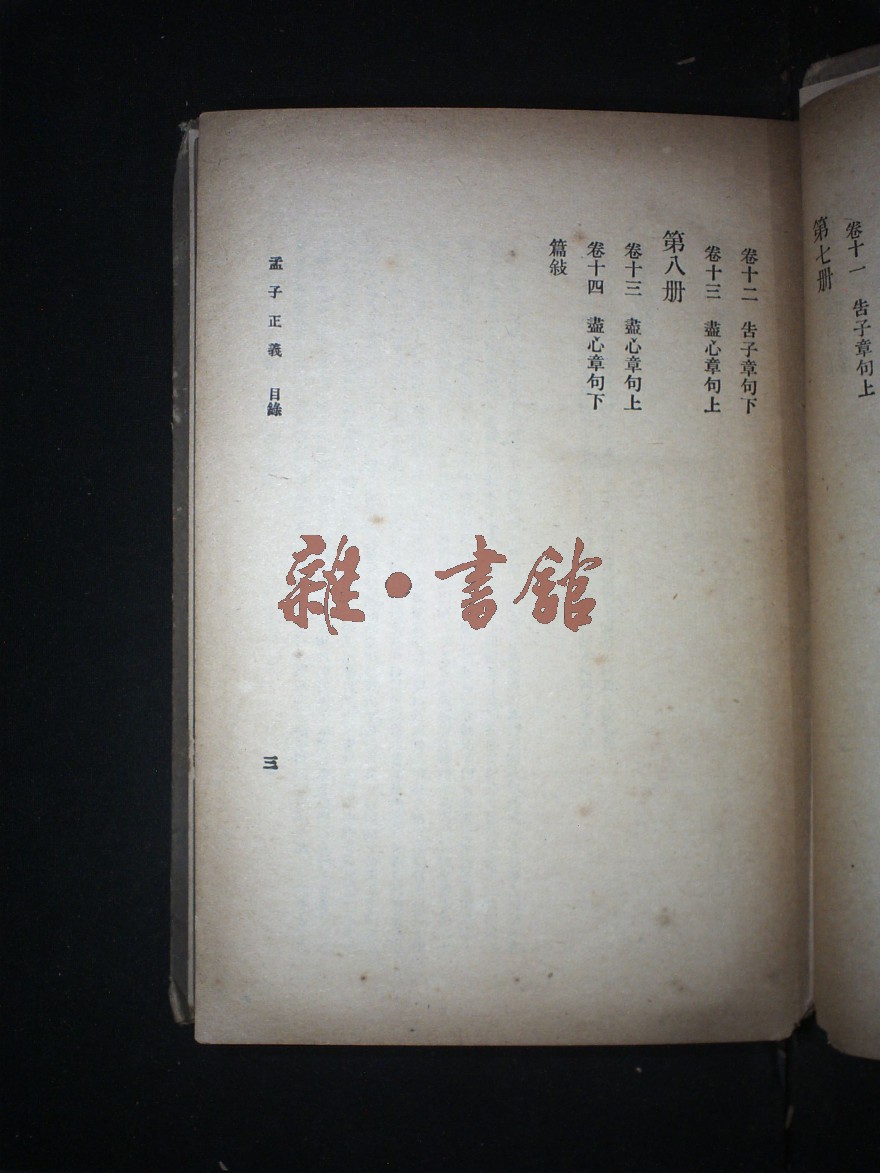 第七册
卷十一　告子章句上
卷十二　告子章句下
卷十三　盡心章句上
第八册
卷十三　盡心章句上
卷十四　盡心章句下
篇敍
孟子正義　目錄
三
雜・書館